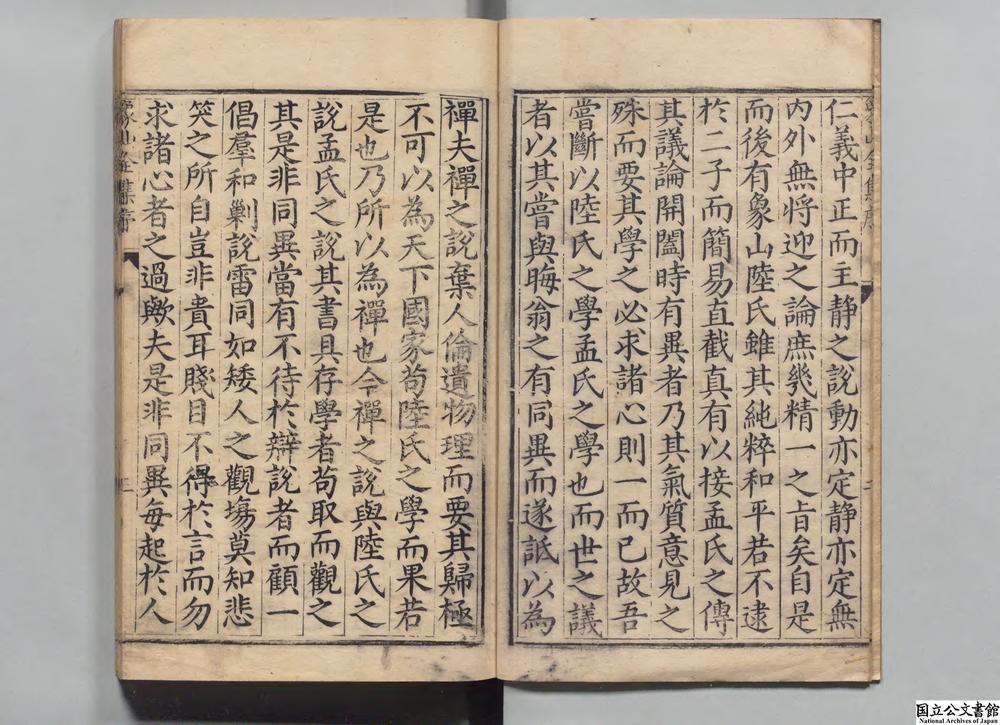 仁義中正而主静之說動亦定静亦定無
内外無将迎之論庶幾精一之旨矣自是
而後有象山陸氏雖其純粹和平若不逮
於二子而簡易直截真有以接孟氏之傳
其議論開闔時有異者乃其氣質意見之
殊而要其學之必求諸心則一而已故吾
嘗斷以陸氏之學孟氏之學也而世之議
者以其嘗與晦翁之有同異而遂詆以為
禪夫禪之說棄人倫遺物理而要其歸極
不可以為天下國家苟陸氏之學而果若
是也乃所以為禪也今禪之說與陸氏之
說孟氏之說其書具存學者苟取而觀之
其是非同異當有不待於辯說者而顧一
倡羣和剿說雷同如矮人之觀塲莫知悲
笑之所自豈非貴耳賤目不得於言而勿
求諸心者之過歟夫是非同異每起於人
象山全集序
国立公文書館
National Archives of Japan